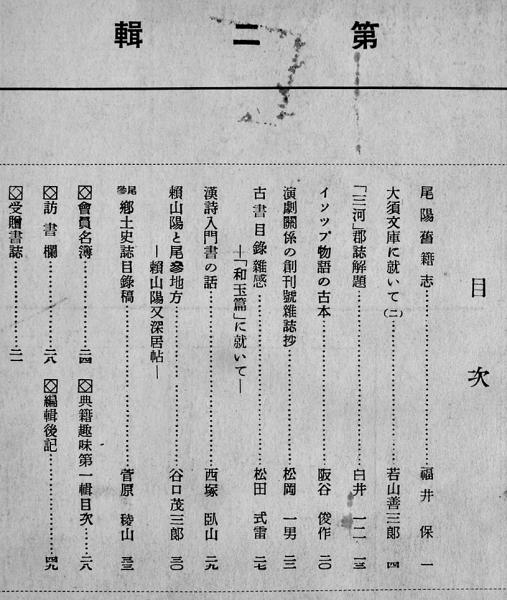 第二輯
目次
尾陽舊籍志……福井保 一
大須文庫に就いて(二)……若山善三郎 四
「三河」郡誌解題……白井一二 一三
イソップ物語の古本……阪谷俊作 二〇
演劇關係の創刊號雜誌抄……松岡一男 二三
古書目錄雜感……松田式雷 二七
―「和玉篇」に就いて―
漢詩入門書の話……西塚臥山 二九
賴山陽と尾參地方……谷口茂三郎 三〇
―賴山陽又深居帖―
尾參鄕土史誌目錄稿……菅原稜山 三三
◇會員名簿……二四
◇典籍趣味第一輯目次……二八
◇訪書欄……二八
◇編輯後記……四九
◇受贈書誌……二一